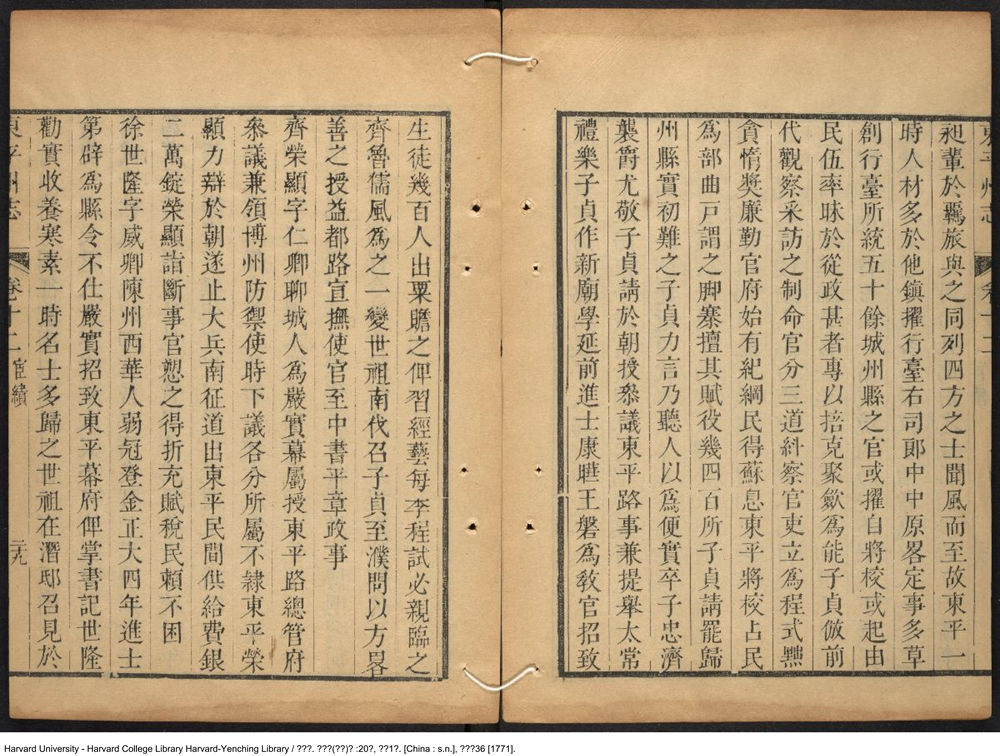 東平州志 卷十二
昶輩於羈旅與之同列四方之士聞風而至故東平一
時人材多於他鎮擢行臺右司郎中中原畧定事多草
創行臺所統五十餘城州縣之官或擢自將校或起由
民伍率昧於從政甚者專以掊克聚斂為能子貞倣前
代觀察采訪之制命官分三道糾察官吏立為程式黜
貪惰獎廉勤官府始有紀綱民得蘇息東平將校占民
為部曲戸謂之脚寨擅其賦役幾四百所子貞請罷歸
州縣實初難之子貞力言乃聽人以為便實卒子忠濟
襲爵尤敬子貞請於朝授叅議東平路事兼提舉太常
禮樂子貞作新廟學延前進士康曄王磐為敎官招致
生徒幾百人出粟贍之俾習經藝每季程試必親臨之
齊魯儒風為之一變世祖南伐召子貞至濮問以方畧
善之授益都路宣撫使官至中書平章政事
齊榮顯字仁卿聊城人為嚴實幕屬授東平路總管府
叅議兼領博州防禦使時下議各分所屬不隷東平榮
顯力辯於朝遂止大兵南征道出東平民間供給費銀
二萬錠榮顯詣斷事官愬之得折充賦稅民賴不困
徐世隆字威卿陳州西華人弱冠登金正大四年進士
第辟為縣令不仕嚴實招致東平幕府俾掌書記世隆
勸實收養寒素一時名士多歸之世祖在潛邸召見於
東平州志 卷十二 宦績 二九
Harvard University - Harvard College Library Harvard-Yenching Library / ???. ???(??)? :20?, ??1?. [China : s.n.], ???36 [1771].